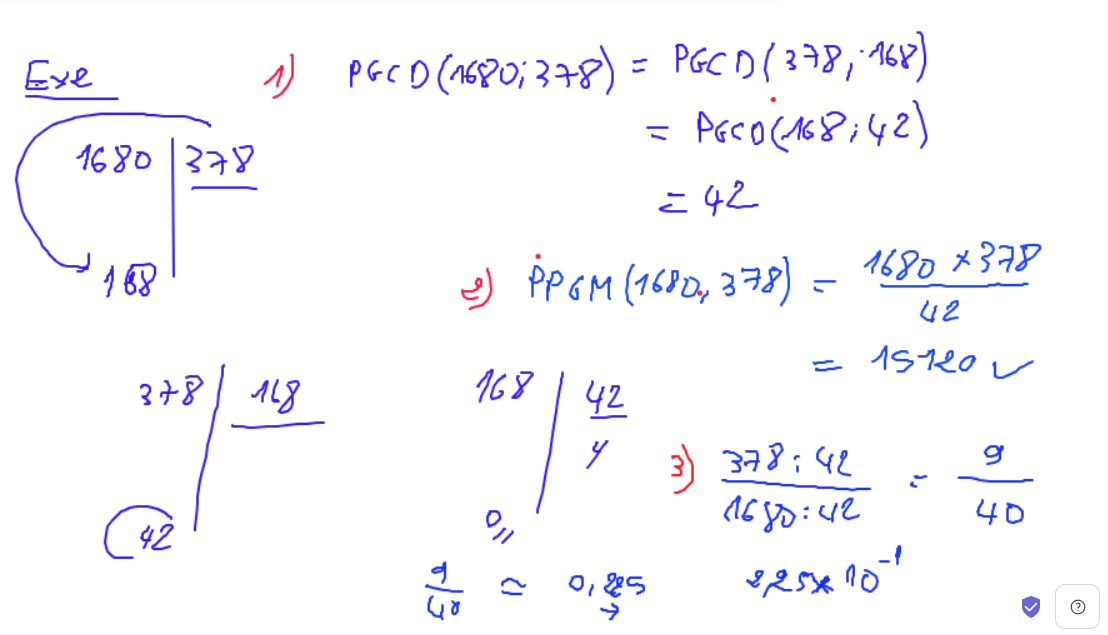 Exe
1) PGCD(1680;378) = PGCD(378,168)
= PGCD(168;42)
= 42
1680 | 378
168
2) PPGM(1680,378) = 1680 × 378 / 42
= 15120 ✓
378 | 168
42
168 | 42
4
0,,
3) 378:42 / 1680:42 = 9 / 40
9/40 ≃ 0,225 2,25 × 10⁻¹